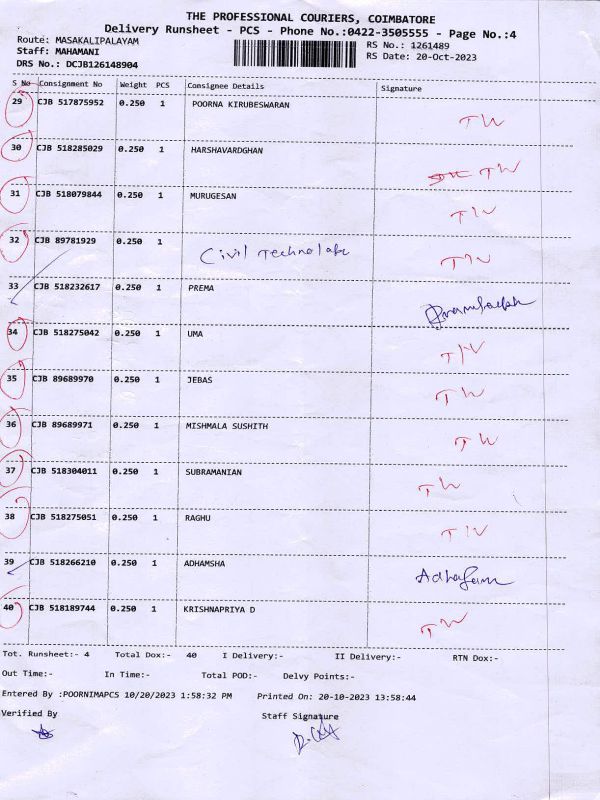 THE PROFESSIONAL COURIERS, COIMBATORE
Delivery Runsheet - PCS - Phone No.:0422-3505555 - Page No.:4
Route: MASAKALIPALAYAM RS No.: 1261489
Staff: MAHAMANI RS Date: 20-Oct-2023
DRS No.: DCJB126148904
S No Consignment No Weight PCS Consignee Details Signature
29 CJB 517875952 0.250 1 POORNA KIRUBESWARAN TW
30 CJB 518285029 0.250 1 HARSHAVARDGHAN TW
31 CJB 518079844 0.250 1 MURUGESAN TW
32 CJB 89781929 0.250 1 Civil Technolab TW
33 CJB 518232617 0.250 1 PREMA
34 CJB 518275042 0.250 1 UMA TW
35 CJB 89689970 0.250 1 JEBAS TW
36 CJB 89689971 0.250 1 MISHMALA SUSHITH TW
37 CJB 518304011 0.250 1 SUBRAMANIAN TW
38 CJB 518275051 0.250 1 RAGHU TW
39 CJB 518266210 0.250 1 ADHAMSHA
40 CJB 518189744 0.250 1 KRISHNAPRIYA D TW
Tot. Runsheet:- 4 Total Dox:- 40 I Delivery:- II Delivery:- RTN Dox:-
Out Time:- In Time:- Total POD:- Delvy Points:-
Entered By :POORNIMAPCS 10/20/2023 1:58:32 PM Printed On: 20-10-2023 13:58:44
Verified By Staff Signature